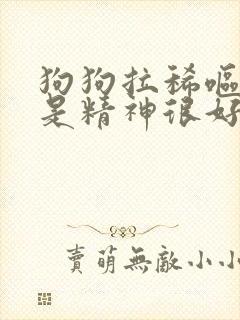 狗狗拉稀嘔
是精神很好
賣萌無敵小小